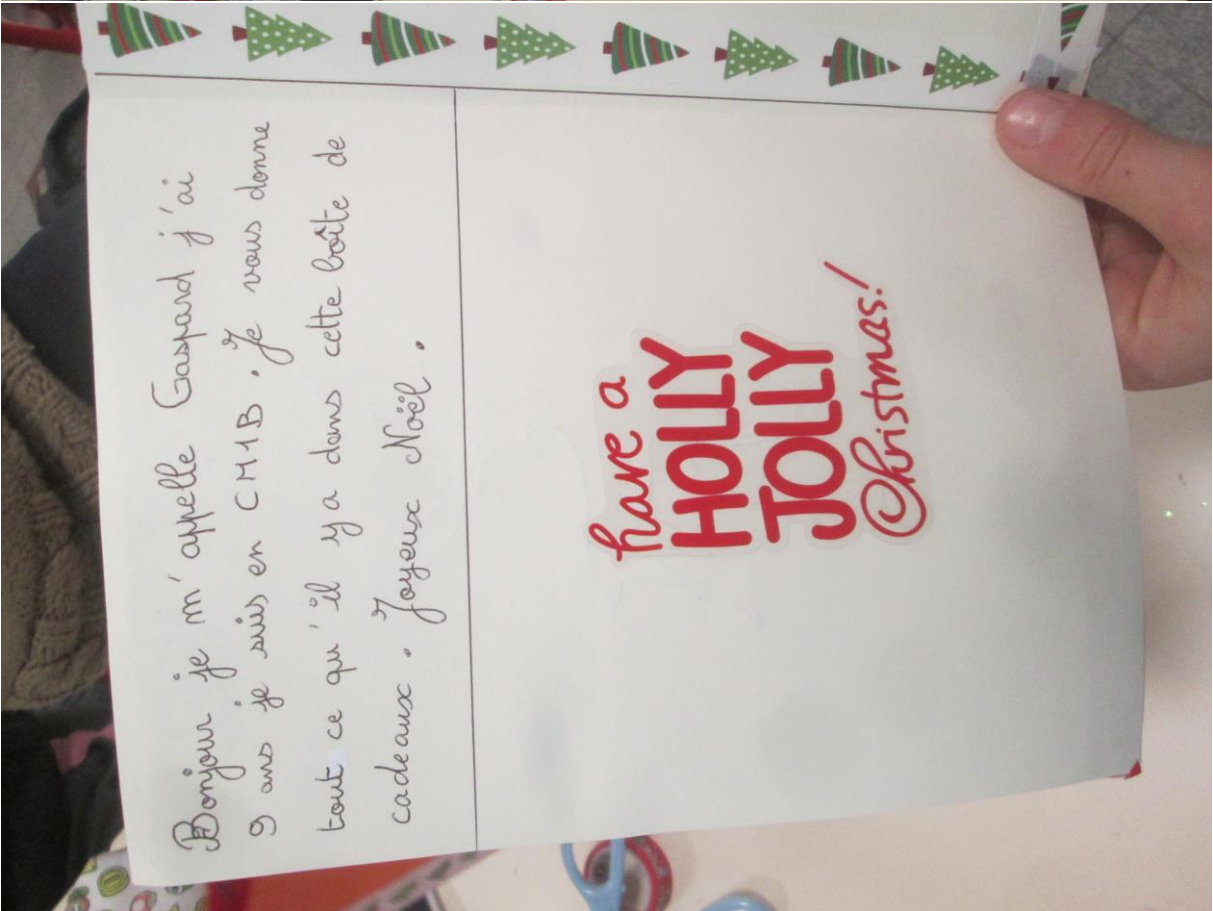 Bonjour je m'appelle Gaspard j'ai
9 ans je suis en CM1B. Je vous donne
tout ce qu'il y a dans cette boîte de
cadeaux. Joyeux Noël.
have a
HOLLY
JOLLY
Christmas!